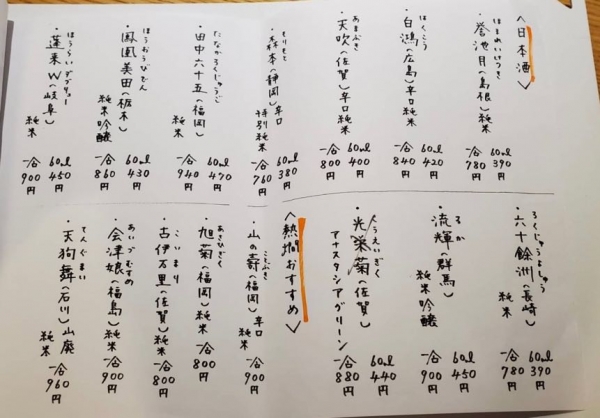 〈日本酒〉
ほまれいけつき
・誉池月(島根)純米
60ml 390円
一合 780円
はくこう
・白鴻(広島)辛口純米
60ml 420円
一合 840円
あまぶき
・天吹(佐賀)辛口純米
60ml 400円
一合 800円
もりもと
・森本(静岡)辛口特別純米
60ml 380円
一合 760円
たなかろくじゅうご
・田中六十五(福岡)純米
60ml 470円
一合 940円
ほうおうびでん
・鳳凰美田(栃木)純米吟醸
60ml 430円
一合 860円
ほうらいダブリュー
・蓬莱W(岐阜)純米
60ml 450円
一合 900円
ろくじゅうよしゅう
・六十餘洲(長崎)純米
60ml 390円
一合 780円
るか
・流輝(群馬)純米吟醸
60ml 450円
一合 900円
こうえいぎく
・光栄菊(佐賀)アナスタシアグリーン
60ml 440円
一合 880円
〈熱燗おすすめ〉
ことぶき
・山の壽(福岡)辛口純米
一合 900円
あさひぎく
・旭菊(福岡)純米
一合 800円
こいまり
・古伊万里(佐賀)純米
一合 800円
あいづむすめ
・会津娘(福島)純米
一合 900円
てんぐまい
・天狗舞(石川)山廃純米
一合 960円